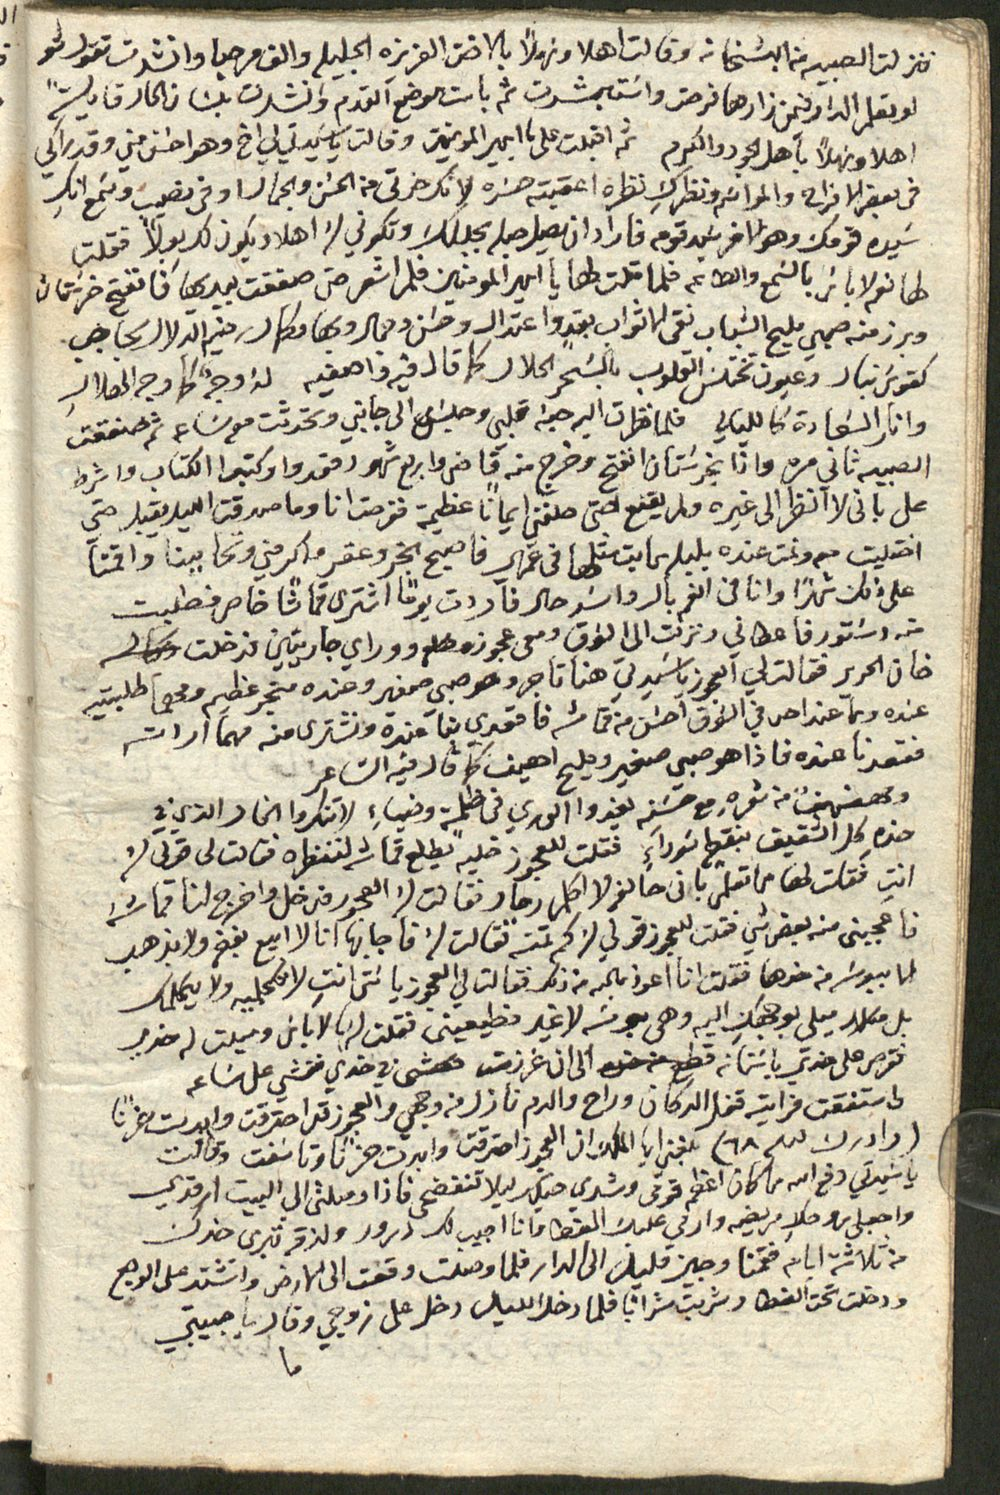 فنزلت الصبيه من البشخانه وقالت اهلا وسهلاً بالاخت العزيزه الجليله والف مرحبا وانشدت تقول شعر
لو تعلم الدار بمن زارها فرحت واستبشرت ثم باست موضع القدم وانشدت بلسان الحال قايلةً
اهلا وسهلاً باهل الجود والكرم ثم اقبلت علي يا امير المومنين وقالت يا سيدتي لي اخ وهو احسن مني وقد راكي
في بعض الافراح والمواسم ونظرك نظره اعقبته حسره لانك حزتي من الحسن والجمال اوفى نصيب وسمع انك
سيده قومك وهو الاخر سيد قومه فاراد ان يصل حبله بحبلك وتكوني له اهلا ويكون لك بعولاً فقلت
لها نعم لا باس بالسمع والطاعه فلما قلت لها يا امير المومنين فلم اشعر حتى صفقت بيديها فانفتح خرستان
وبرز منه صبي مليح الشباب نقي الاثواب بقد واعتدال وحسن وجمال وبها وكمال رخيم الدلال بحاجب
كقوس نبال وعيون تختلس القلوب بالسحر الحلال كما قال فيه واصفيه له وجهٌ كما وجه الهلال
واثار السعادة كالليالي فلما نظرت اليه حبه قلبي وجلس الى جانبي وتحدثت معه ساعه ثم صفقت
الصبيه ثاني مره واذا بخرستان انفتح وخرج منه قاضي واربع شهود فقعدوا وكتبوا الكتاب واشرط
علي باني لا انظر الى غيره ولم يقنع حتى حلفني ايماناً عظيمة ففرحت انا وما صدقت الليل يقبل حتى
اختليت معه ونمت عنده بليله ما بت مثلها في عمري فاصبح الخير وعقر واكرمني وتحابينا واقمنا
على ذلك شهرًا وانا في انعم بال واسر حال فاردت يومًا اشتري قماشًا خاص فطلبت
منه دستور فاعطاني ونزلت الى السوق ومعي عجوز ووراي جاريتين فدخلت
خان الحرير فقالت لي العجوز يا سيدتي هنا تاجر وهو صبي صغير وعنده متجر عظيم ومهما طلبتيه
عنده وما عند احد في السوق احسن من قماشه فاقعدي بنا عنده ونشتري منه مهما اردت
فقعدنا عنده فاذا هو صبي صغير ومليح اهيف كما قال فيه الشاعر
ومهفهفٌ من شعره مع حسنه يغدوا الورى في ظلمة وضياءِ لا تنكروا الخال الذي في
خده كل الشقيق بنقطة سوداءِ فقلت للعجوز خليه يطلع قماشه لننظره فقالت لي قولي له
انتِ فقلت لها ما تعلمي باني حالفه لا اكلم رجل فقالت له العجوز فدخل واخرج لنا قماشه
فاعجبني منه بعض شي فقلت للعجوز قولي له كم ثمنه فقالت له فاجابها انا لا ابيع بفضه ولا بذهب
الا ببوسه من خدها فقلت انا اعوذ بالله من ذلك فقالت لي العجوز يا ستي انتِ لا تكلميه ولا يكلمك
بل ميلي بوجهك اليه وهي بوسه لا غير فطيعيني فقلت لها لا باس وميلت له خدي
فقرص على خدي باسنانه الى ان غرزت في خدي فغشي علي ساعه
ثم استفقت فرايته قفل الدكان وراح والدم نازل من وجهي والعجوز قد احترقت وابدت حزنًا
(وادرك ٦٨) بلغني ايها الملك ان العجوز احترقت وابدت حزنًا وتاسفت وقالت
يا سيدتي دفع الله ما كان اعظم قومي وشدي حيلك ليلا تنفضحي فاذا وصلتي الى البيت ارقدي
واجعلي روحك مريضه وارمي عليك الغطا وانا اجيب لك درور ولزقه تبري خدك
من ثلاثة ايام فقمنا وجين قليل الى الدار فلما وصلت وقعت الى الارض واشتد علي الوجع
ودخلت تحت الغطا وشربت شرابًا فلما دخل الليل دخل علي زوجي وقال يا حبيبتي
ما